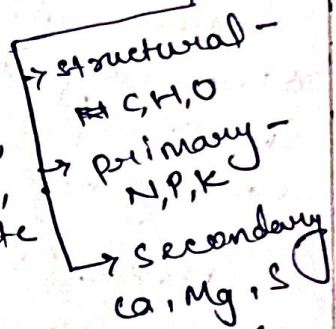 structural -
C, H, O
primary -
N, P, K
te
secondary
Ca, Mg, S